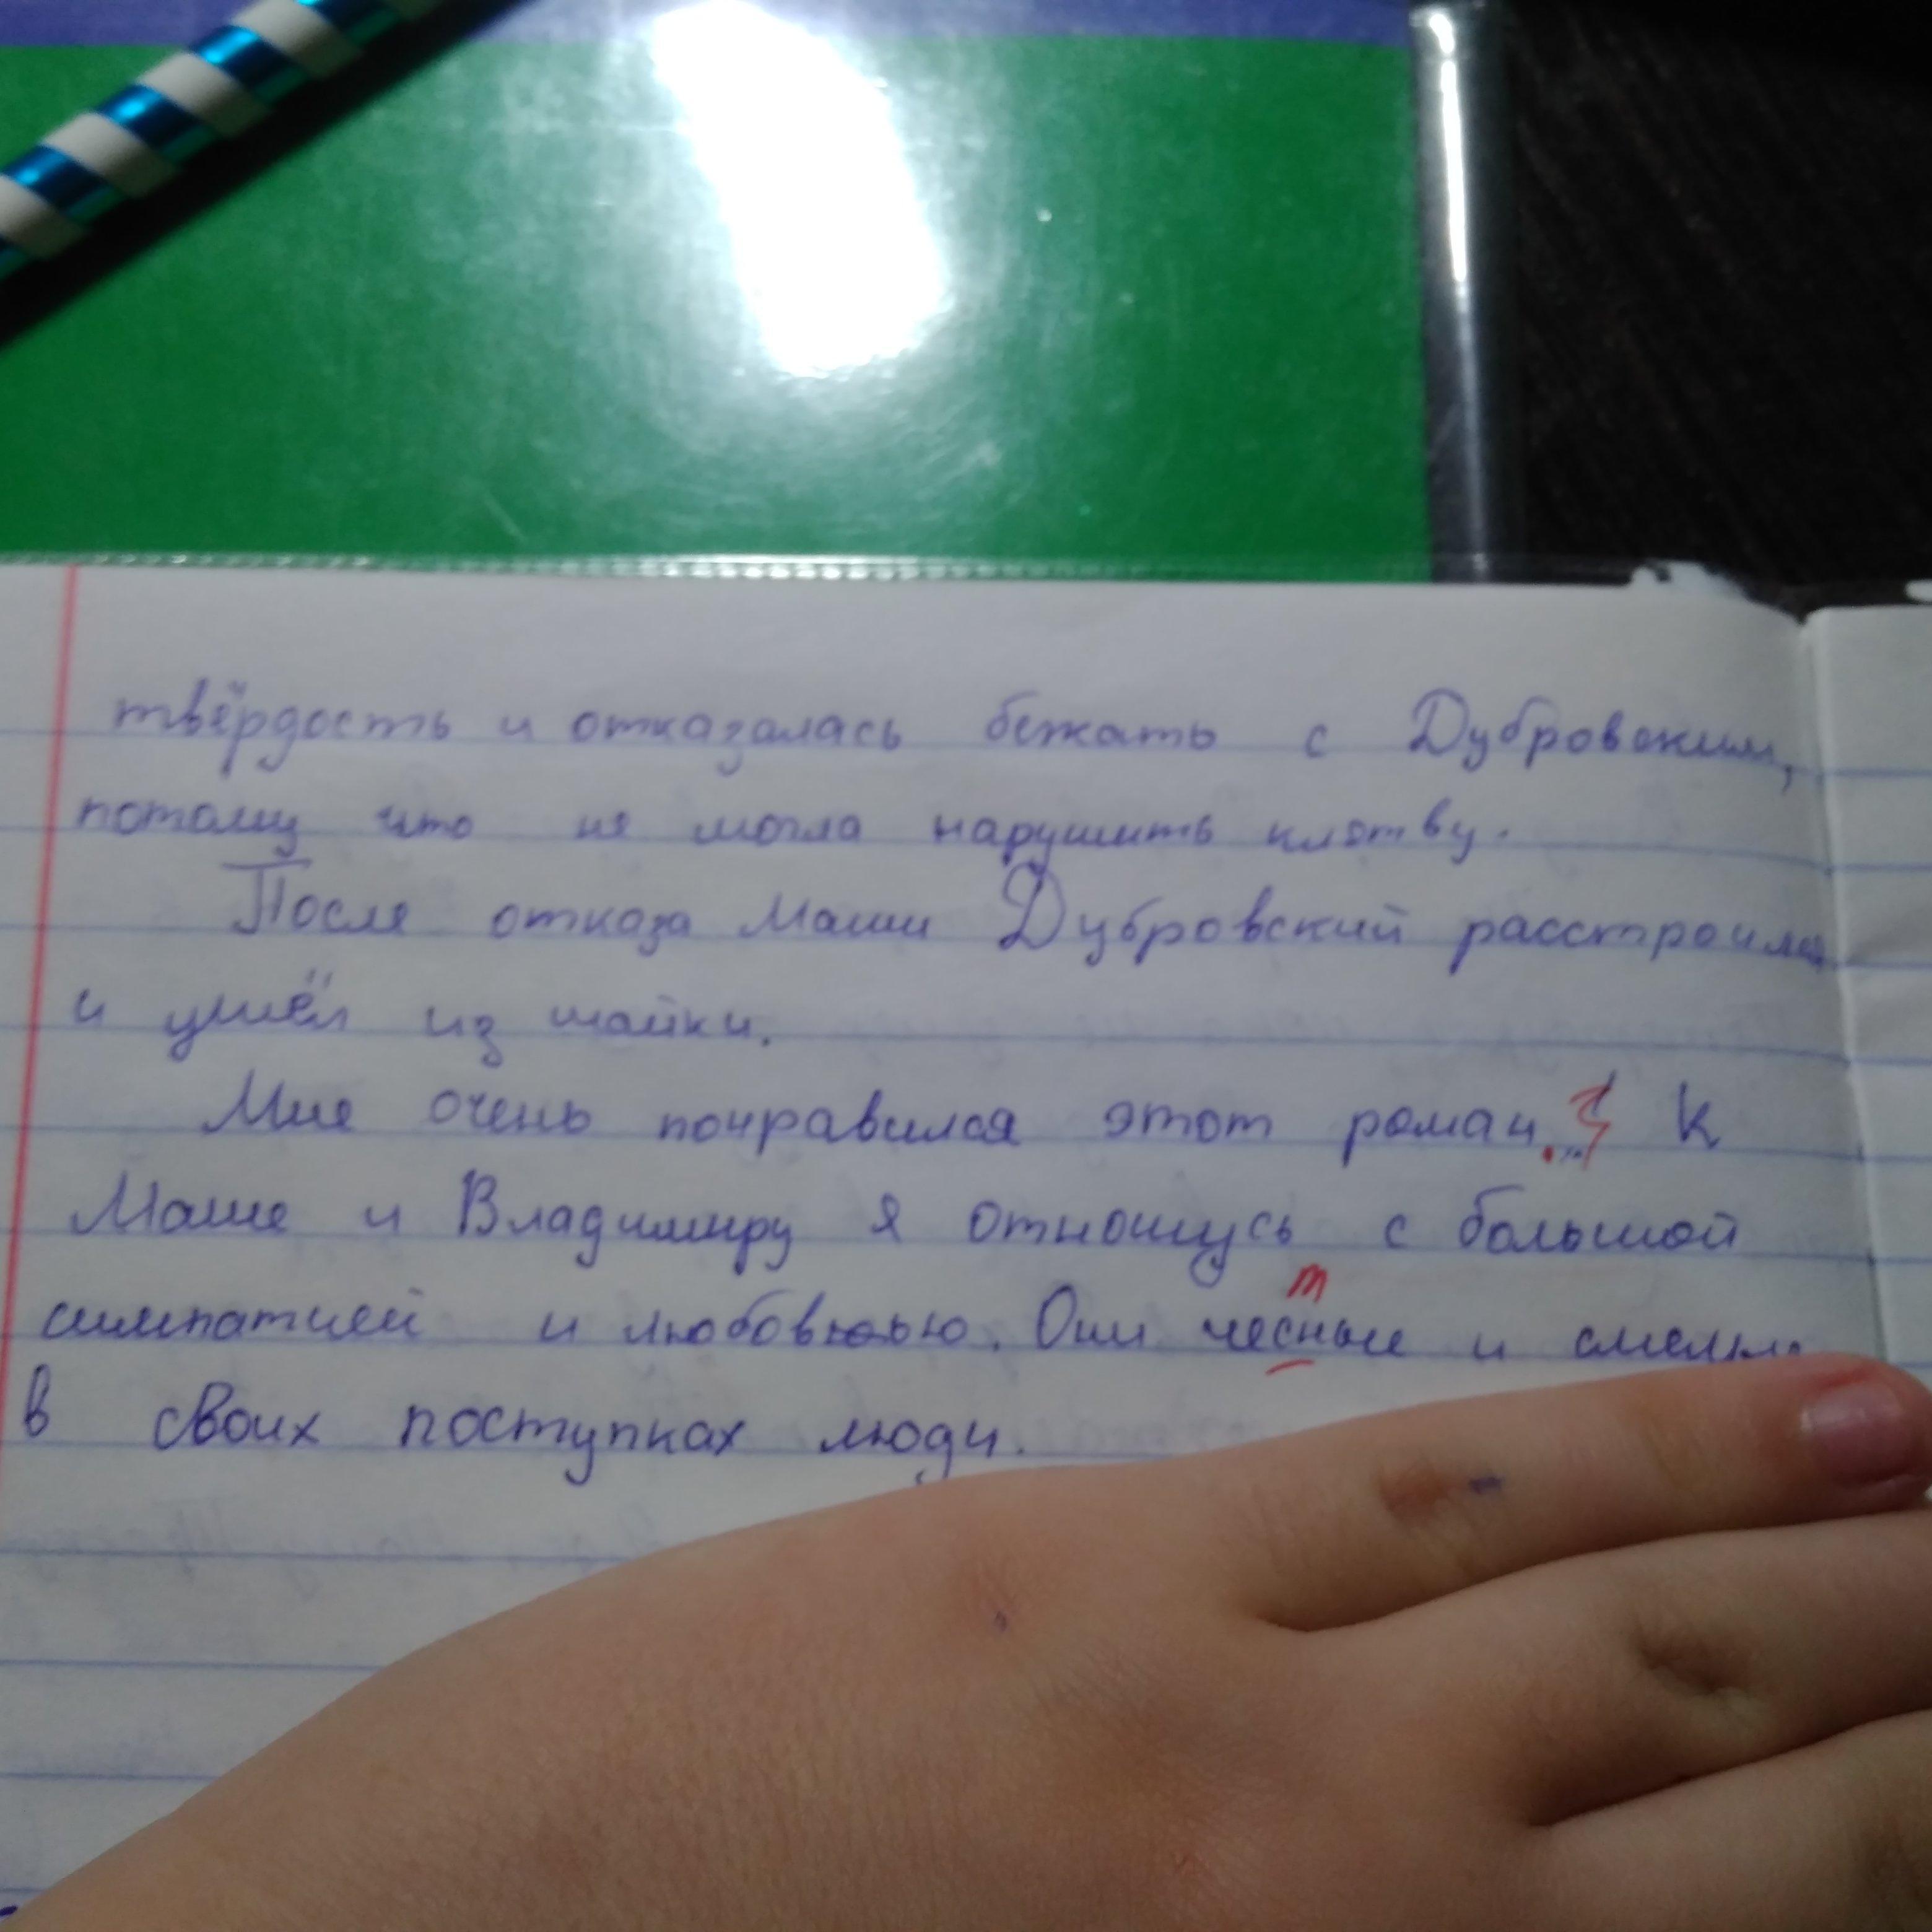 твёрдость и отказалась бежать с Дубровским,
потому что не могла нарушить клятву.
После отказа Маши Дубровский расстроился
и ушёл из шайки.
Мне очень понравился этот роман. К
Маше и Владимиру я отношусь с большой
симпатией и любовью. Они чесные и смелые
т
в своих поступках люди.